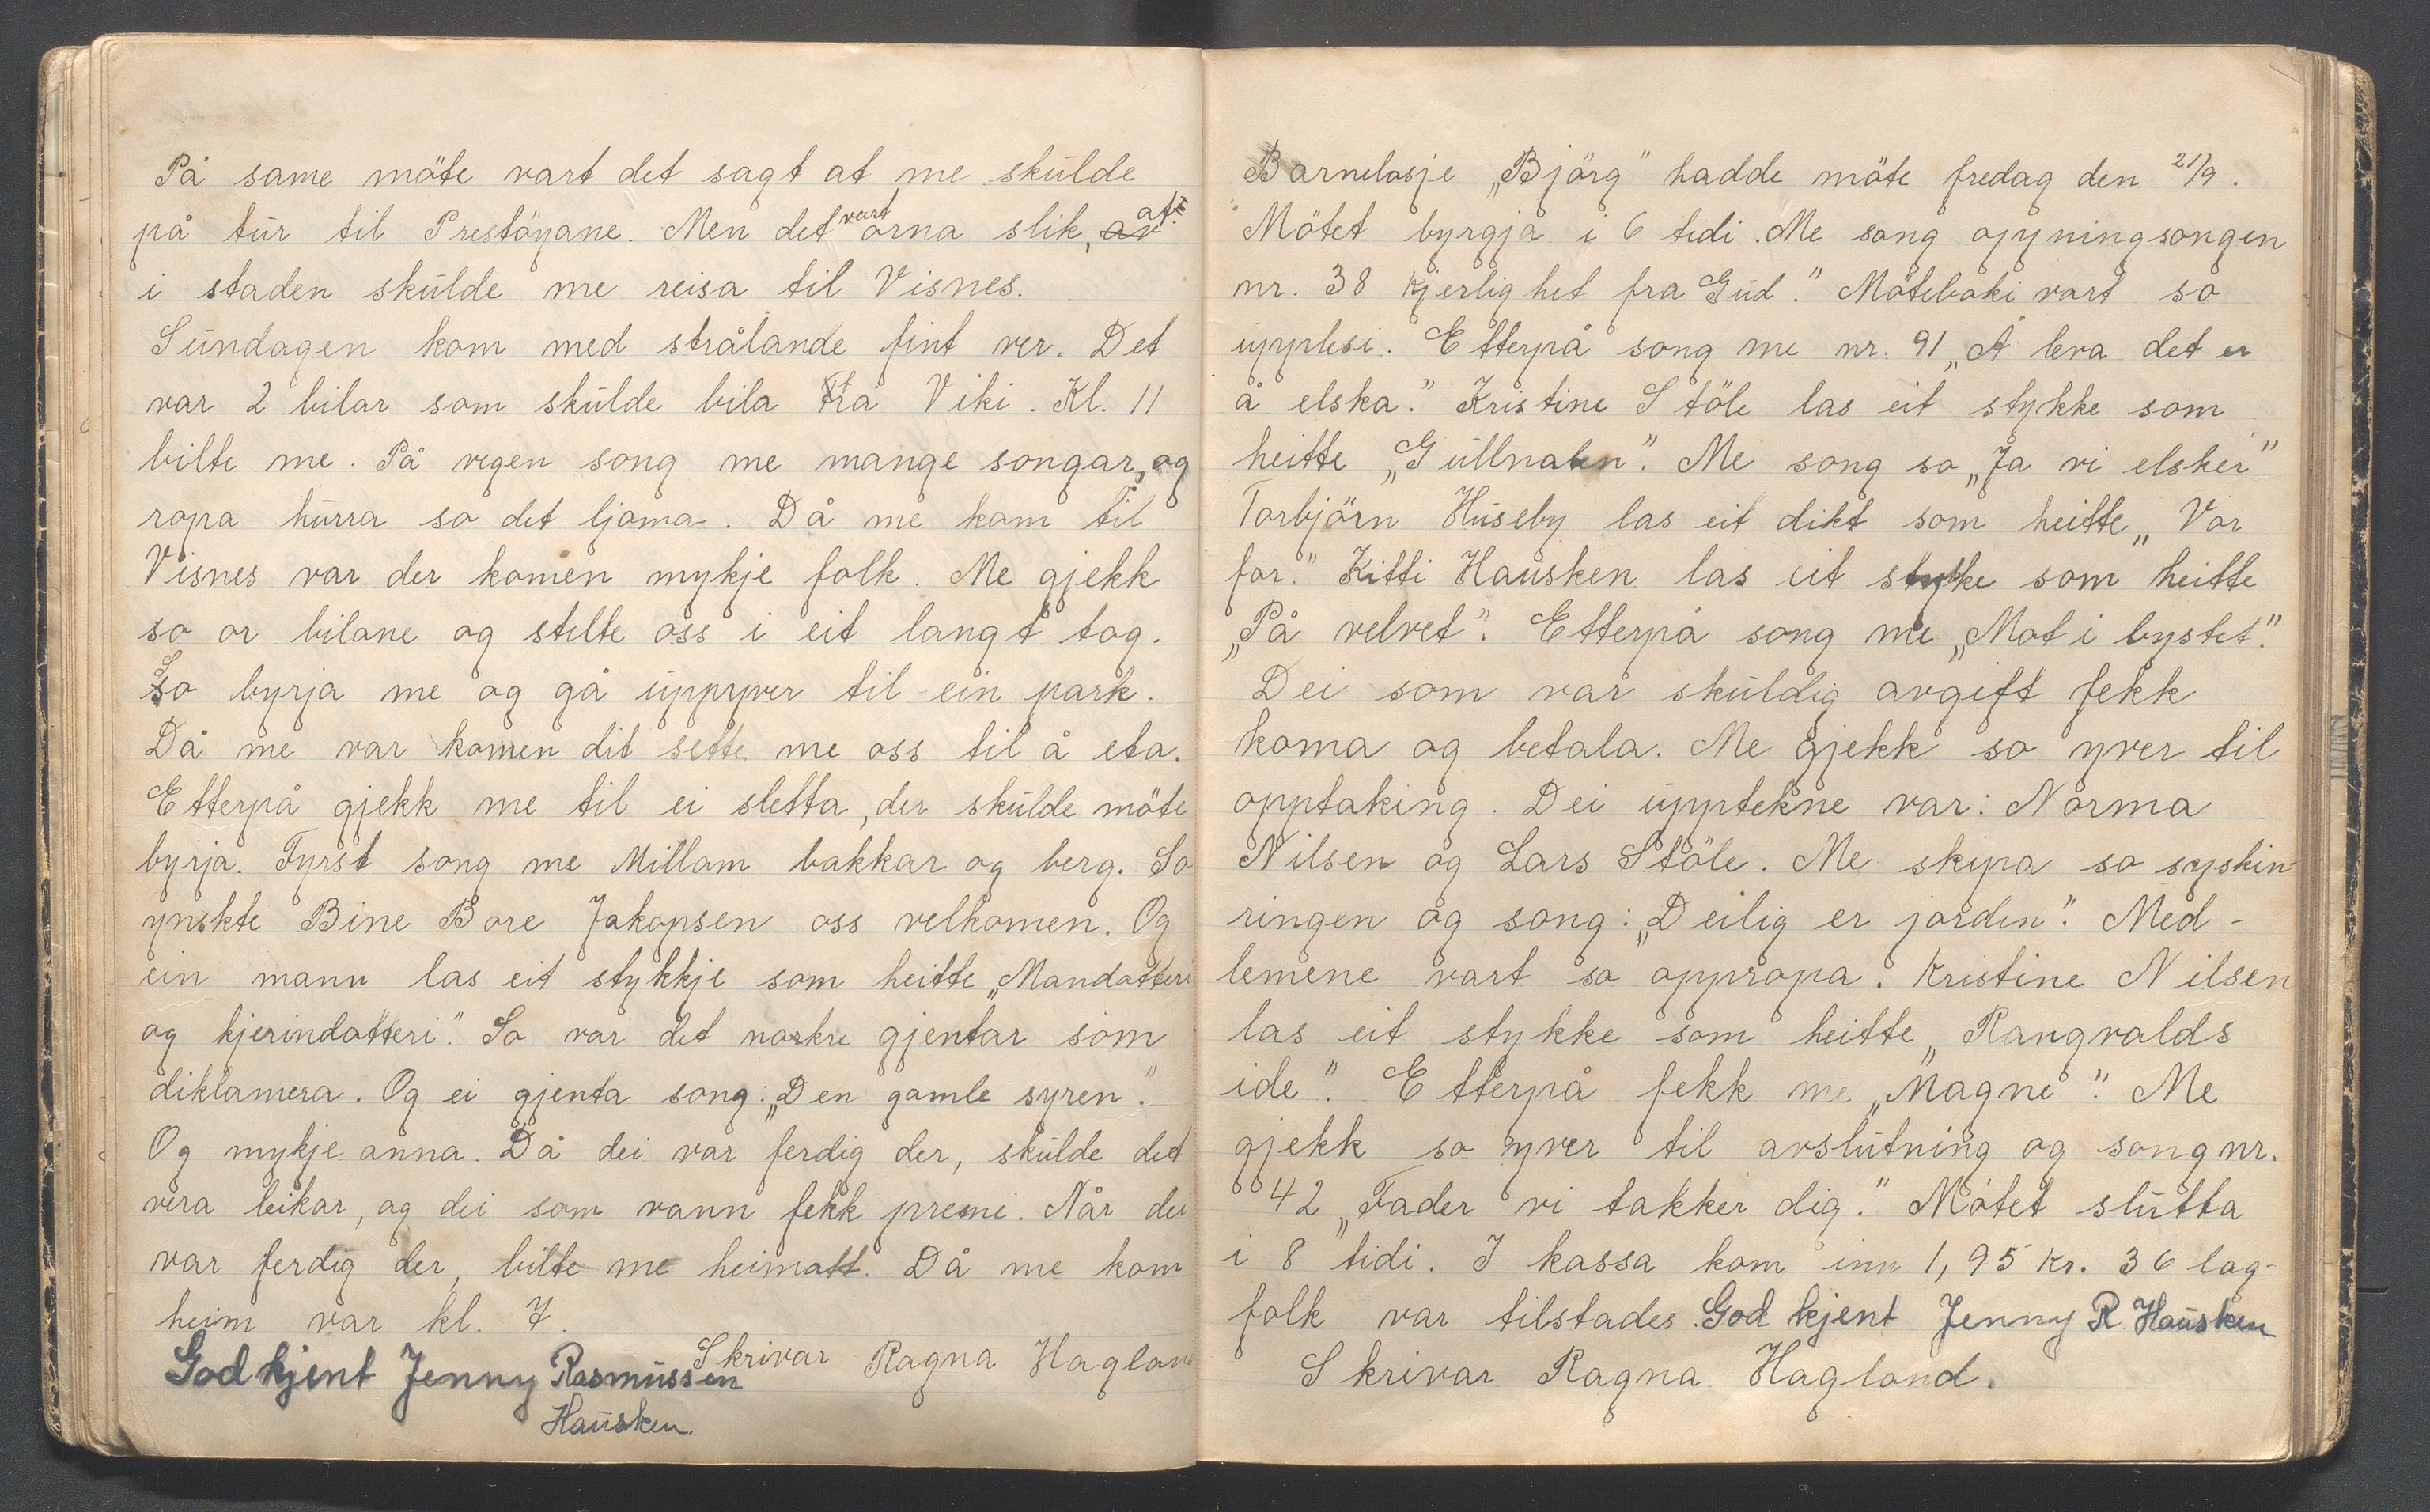 På same möte vart det sagt at me skulde
på tur til Prestöyane. Men det vart orna slik, at
i staden skulde me reisa til Visnes.
Sundagen kom med strålande fint ver. Det
var 2 bilar som skulde bila frå Viki. Kl. 11
bilte me. På vegen song me mange songar, og
ropa hurra so det ljoma. Då me kom til
Visnes var der komen mykje folk. Me gjekk
so or bilane og stelte oss i eit langt tog.
So byrja me og gå uppyver til ein park.
Då me var komen dit sette me oss til å eta.
Etterpå gjekk me til ei sletta, der skulde möte
byrja. Fyrst song me Millom bakkar og berg. So
ynskte Bine Bore Jakopsen oss velkomen. Og
ein mann las eit stykkje som heitte „Mandotteri
og kjerindotteri". So var det nokre gjentar som
diklamera. Og ei gjenta song: „Den gamle syren".
Og mykje anna. Då dei var ferdig der, skulde det
vera leikar, og dei som vann fekk premi. Når dei
var ferdig der, bilte me heimatt. Då me kom
heim var kl. 7.
Skrivar Ragna Hagland
Godkjent Jenny Rasmussen
Hausken.
Barnelosje „Björg" hadde möte fredag den 21/9.
Mötet byrgja i 6 tidi. Me song opyningsongen
nr. 38 kjerlighet fra Gud." Möteboki vart so
upplesi. Etterpå song me nr. 91 „Å leva det er
å elska." Kristine Stöle las eit stykke som
heitte „Gullnalen". Me song so „Ja vi elsker"
Torbjörn Huseby las eit dikt som heitte „Vor
far." Kitti Hausken las eit stykke som heitte
„På velvet". Etterpå song me „Mot i bystet".
Dei som var skuldig avgift fekk
koma og betala. Me gjekk so yver til
opptaking. Dei upptekne var: Norma
Nilsen og Lars Stöle. Me skipa so syskin-
ringen og song: „Deilig er jorden". Med-
lemene vart so oppropa. Kristine Nilsen
las eit stykke som heitte „Rangvalds
ide". Etterpå fekk me „Magne". Me
gjekk so yver til avslutning og song nr.
42 „Fader vi takker dig." Mötet slutta
i 8 tidi. I kassa kom inn 1,95 kr. 36 lag-
folk var tilstades. Godkjent Jenny R. Hausken
Skrivar Ragna Hagland.